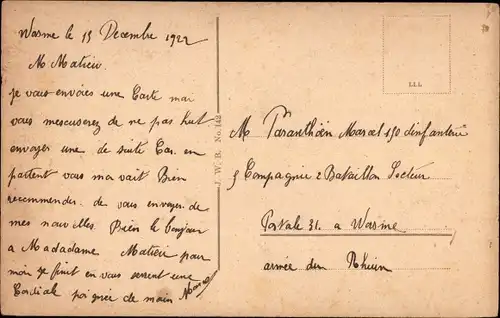 Wasme le 13 Decembre 1922
M Matieu.
je vous envoies une Carte mai
vous mescuserez de ne pas
envoyer une de suite Car. en
partent vous ma vait Bien
recommender. de vous envoyer. de
mes nouvelles. Bien le bonjour
a Madadame Matieu pour
moi je finit en vous serrent une
Cordiale poignée de main
J. W. B. No. 142
L.L.L.
M Paranthöen Marcel 150 dinfanterie
5 Compagnie 2 Bataillon Secteur
Postale 31. a Wasme
armée du Rhin